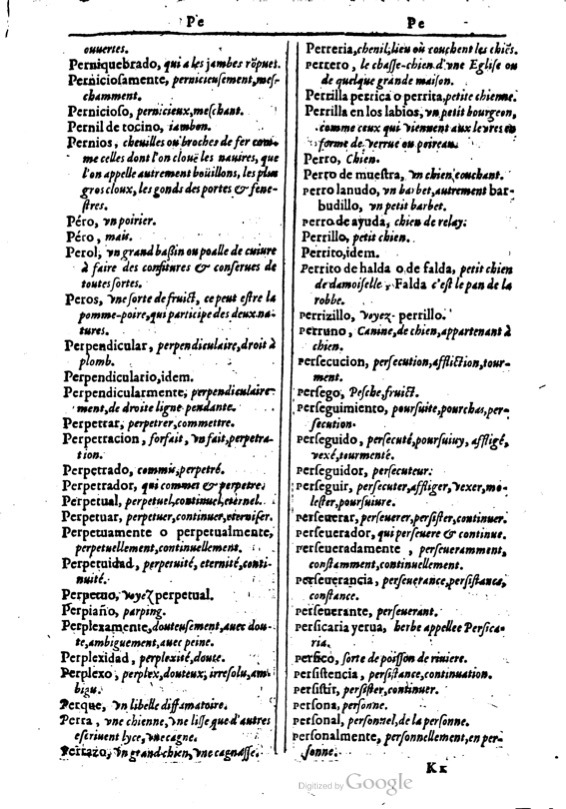 Pe
Pe
ouuertes.
Perniquebrado, qui a les jambes rõpuet.
Perniciosamente, pernicieusement, mes-
chamment.
Pernicioso, pernicieux, meschant.
Pernil de tocino, iambon.
Pernios, cheuilles ou broches de fer com-
me celles dont l'on clouë les nauires, que
l'on appelle autrement boüillons, les plus
gros cloux, les gonds des portes & fene-
stres.
Péro, vn poirier.
Péro, mais.
Perol, vn grand bassin ou poalle de cuiure
à faire des confitures & conserues de
toutes sortes.
Peros, vne sorte de fruict, ce peut estre la
pomme-poire, qui participe des deux na-
tures.
Perpendicular, perpendiculaire, droit à
plomb.
Perpendiculario, idem.
Perpendicularmente, perpendiculaire-
ment, de droite ligne pendante.
Perpetrar, perpetrer, commettre.
Perpetracion, forfait, vn fait, perpetra-
tion.
Perpetrado, commis, perpetré.
Perpetrador, qui commet & perpetre.
Perpetual, perpetuel, continuel, eternel.
Perpetuar, perpetuer, continuer, eterniser.
Perpetuamente o perpetualmente,
perpetuellement, continuellement.
Perpetuidad, perpetuité, eternité, conti-
nuité.
Perpetuo, voyez perpetual.
Perpiaño, parping.
Perplexamente, douteusement, auec dou-
te, ambiguement, auec peine.
Perplexidad, perplexité, doute.
Perplexo, perplex, douteux, irresolu, am-
bigu.
Perque, vn libelle diffamatoire.
Perra, vne chienne, vne lisse que d'autres
escriuent lyce, vne cagne.
Perrazo, vn grand chien, vne cagnasse.
Perreria, chenil, lieu où couchent les chiẽs.
Perrero, le chasse-chien d'vne Eglise ou
de quelque grande maison.
Perrilla perrica o perrita, petite chienne.
Perrilla en los labios, vn petit bourgeon,
comme ceux qui viennent aux leures en
forme de verrue ou poireau.
Perro, Chien.
Perro de muestra, vn chien couchant.
Perro lanudo, vn barbet, autrement bar-
budillo, vn petit barbet.
Perro de ayuda, chien de relay.
Perrillo, petit chien.
Perrito, idem.
Perrito de halda o de falda, petit chien
de damoiselle, Falda c'est le pan de la
robbe.
Perrizillo, voyez perrillo.
Perruno, Canine, de chien, appartenant à
chien.
Persecucion, persecution, affliction, tour-
ment.
Persego, Pesche, fruict.
Perseguimiento, poursuite, pourchas, per-
secution.
Perseguido, persecuté, poursuiuy, affligé,
vexé, tourmenté.
Perseguidor, persecuteur.
Perseguir, persecuter, affliger, vexer, mo-
lester, poursuiure.
Perseuerar, perseuerer, persister, continuer.
Perseuerador, qui perseuere & continue.
Perseueradamente, perseueramment,
constamment, continuellement.
Perseuerancia, perseuerance, persistance,
constance.
Perseuerante, perseuerant.
Persicaria yerua, herbe appellee Persica-
ria.
Persico, sorte de poisson de riuiere.
Persistencia, persistance, continuation.
Persistir, persister, continuer.
Persona, personne.
Personal, personnel, de la personne.
Personalmente, personnellement, en per-
sonne.
Kk
Digitized by Google